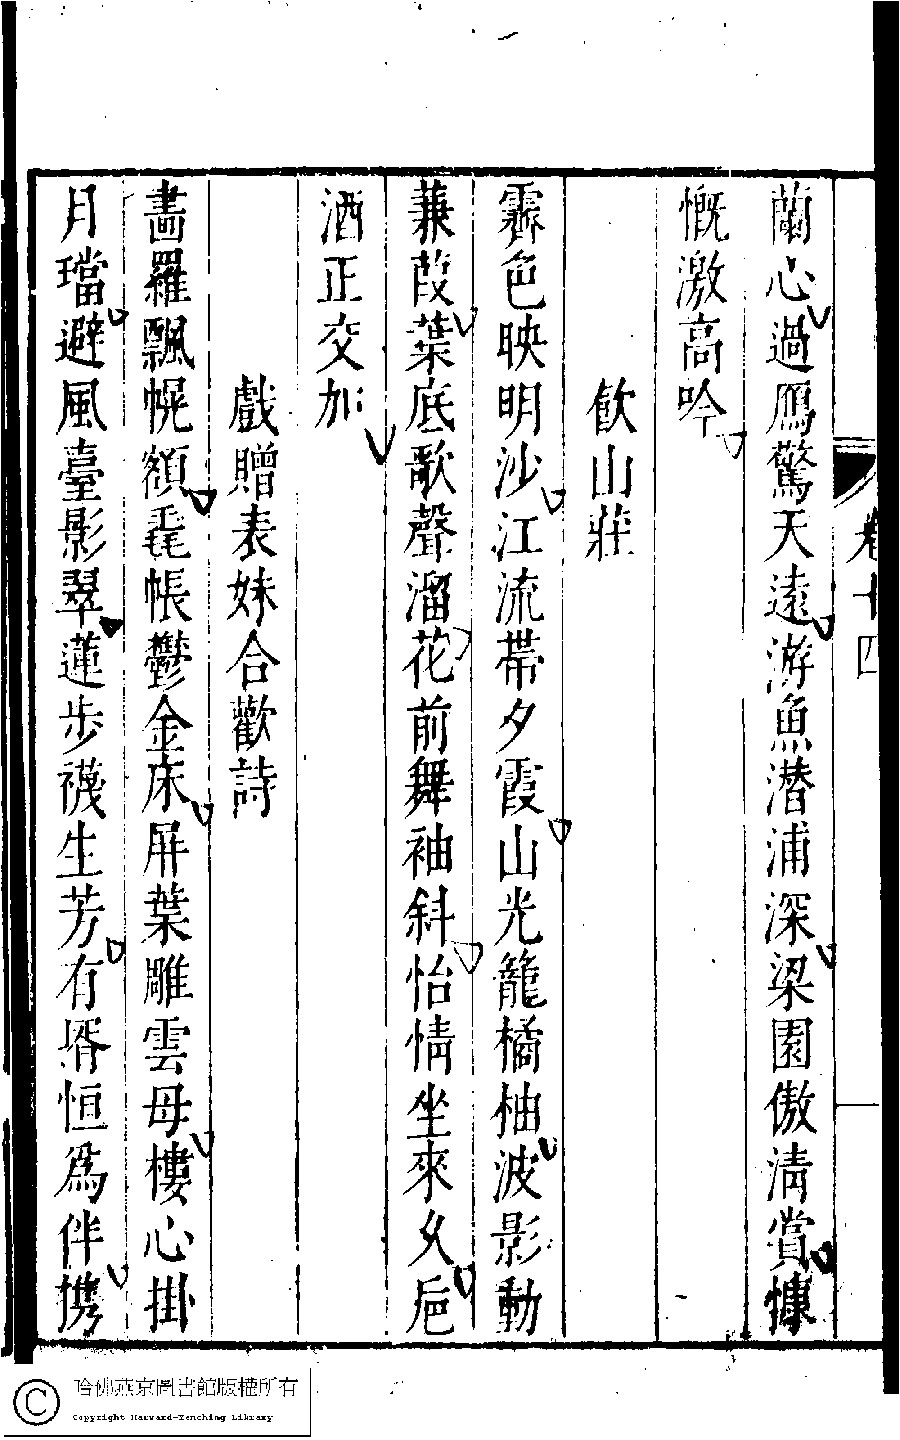 卷十四
蘭心過鴈驚天遠游魚潛浦深梁園傲清賞慷
慨激高吟
飲山莊
霽色映明沙江流帶夕霞山光籠橘柚波影動
蒹葭葉底歌聲溜花前舞袖斜怡情坐來久巵
酒正交加
戲贈表妹合歡詩
畵羅飄幌額毳帳鬱金床屏葉雕雲母樓心掛
月璫避風臺影翠蓮步襪生芳有壻恒爲伴携
哈佛燕京圖書館版權所有
Copyright Harvard-Yenching Library